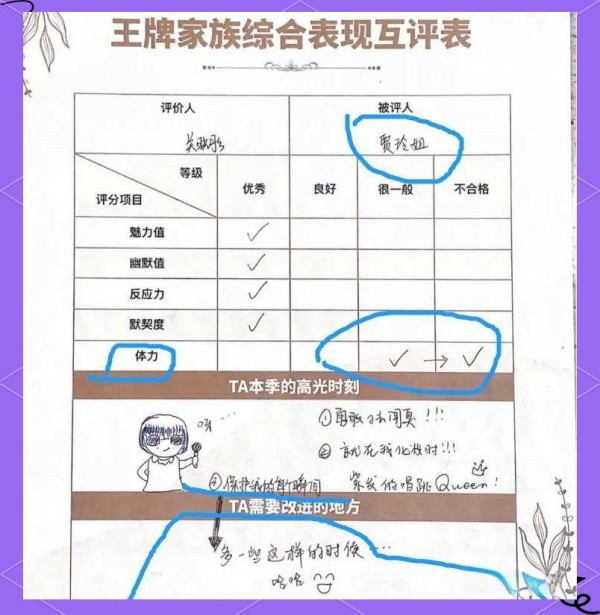 王牌家族综合表现互评表
评价人 被评人
关晓彤 贾玲姐
等级 评分项目 优秀 良好 很一般 不合格
魅力值 ✓
幽默值 ✓
反应力 ✓
默契度 ✓
体力 ✓ → ✓
TA本季的高光时刻
唷…
①勇敢去闯真!!!
② 就在我化妆时!!!
紧发的唱跳Queen!
④保护我的每个瞬间
TA需要改进的地方
多一些这样的时候…
哈哈